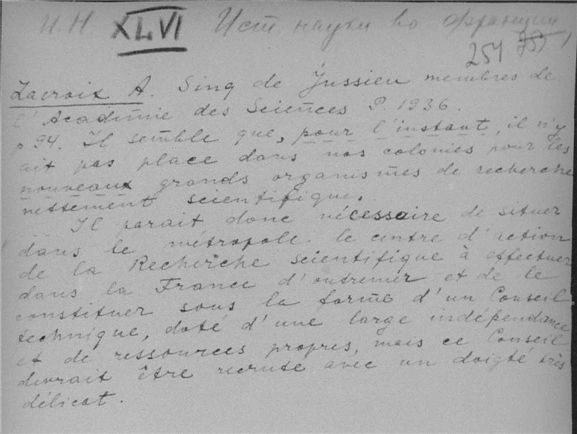 И.Н XLVI Ист науки во Франции,
254 255
Lacroix A. Sinq de Jussieu membres de
l'Academie des Sciences P. 1936.
p 94. Il semble que, pour l'instant, il n'y
ait pas place dans nos colonies pour les
nouveaux grands organismes de recherche
nettement scientifique.
Il parait donc nécessaire de situer
dans le métropole le centre d'action
de la Recherche scientifique à effectuer
dans la France d'outremer et de le
constituer sous la forme d'un Conseil
technique, doté d'une large indépendance
et de ressources propres, mais ce Conseil
devrait être recruté avec un doigté très
délicat.